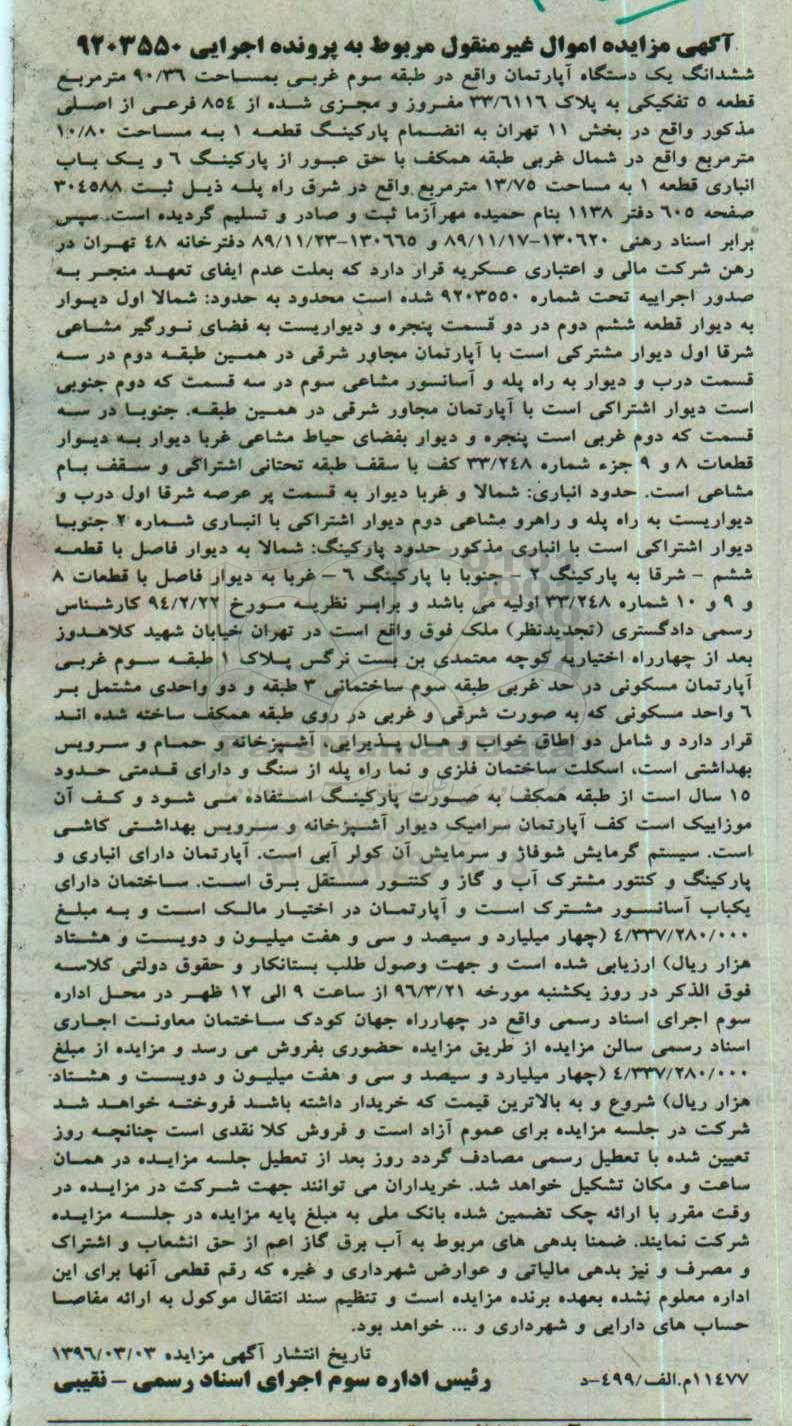 آگهی مزایده اموال غیرمنقول مربوط به پرونده اجرایی ۹۲۰۳۵۵۰
ششدانگ یک دستگاه آپارتمان واقع در طبقه سوم غربی بمساحت ۹۰/۳۶ مترمربع
قطعه ۵ تفکیکی به پلاک ۳۳/۶۱۱۶ مفروز و مجزی شده از ۸۵۴ فرعی از اصلی
مذکور واقع در بخش ۱۱ تهران به انضمام پارکینگ قطعه ۱ به مساحت ۱۰/۸۰
مترمربع واقع در شمال غربی طبقه همکف با حق عبور از پارکینگ ۶ و یک باب
انباری قطعه ۱ به مساحت ۱۳/۷۵ مترمربع واقع در شرق راه پله ذیل ثبت ۳۰۴۵۸۸
صفحه ۶۰۵ دفتر ۱۱۳۸ بنام حمیده مهرآزما ثبت و صادر و تسلیم گردیده است. سپس
برابر اسناد رهنی ۱۳۰۶۲۰-۸۹/۱۱/۱۷ و ۱۳۰۶۶۵-۸۹/۱۱/۲۳ دفترخانه ۴۸ تهران در
رهن شرکت مالی و اعتباری عسکریه قرار دارد که بعلت عدم ایفای تعهد منجر به
صدور اجراییه تحت شماره ۹۲۰۳۵۵۰ شده است محدود به حدود: شمالا اول دیوار
به دیوار قطعه ششم دوم در دو قسمت پنجره و دیواریست به فضای نورگیر مشاعی
شرقا اول دیوار مشترکی است با آپارتمان مجاور شرقی در همین طبقه دوم در سه
قسمت درب و دیوار به راه پله و آسانسور مشاعی سوم در سه قسمت که دوم جنوبی
است دیوار اشتراکی است با آپارتمان مجاور شرقی در همین طبقه. جنوبا در سه
قسمت که دوم غربی است پنجره و دیوار بفضای حیاط مشاعی غربا دیوار به دیوار
قطعات ۸ و ۹ جزء شماره ۳۳/۲۴۸ کف با سقف طبقه تحتانی اشتراکی و سقف بام
مشاعی است. حدود انباری: شمالا و غربا دیوار به قسمت پر عرصه شرقا اول درب و
دیواریست به راه پله و راهرو مشاعی دوم دیوار اشتراکی با انباری شماره ۲ جنوبا
دیوار اشتراکی است با انباری مذکور حدود پارکینگ: شمالا به دیوار فاصل با قطعه
ششم - شرقا به پارکینگ ۲ - جنوبا با پارکینگ ۶ - غربا به دیوار فاصل با قطعات ۸
و ۹ و ۱۰ شماره ۳۳/۲۴۸ اولیه می باشد و برابر نظریه مورخ ۹۴/۲/۲۲ کارشناس
رسمی دادگستری (تجدیدنظر) ملک فوق واقع است در تهران خیابان شهید کلاهدوز
بعد از چهارراه اختیاریه کوچه معتمدی بن بست نرگس پلاک ۱ طبقه سوم غربی
آپارتمان مسکونی در حد غربی طبقه سوم ساختمانی ۳ طبقه و دو واحدی مشتمل بر
۶ واحد مسکونی که به صورت شرقی و غربی در روی طبقه همکف ساخته شده اند
قرار دارد و شامل دو اطاق خواب و هال پذیرایی، آشپزخانه و حمام و سرویس
بهداشتی است، اسکلت ساختمان فلزی و نما راه پله از سنگ و دارای قدمتی حدود
۱۵ سال است از طبقه همکف به صورت پارکینگ استفاده می شود و کف آن
موزاییک است کف آپارتمان سرامیک دیوار آشپزخانه و سرویس بهداشتی کاشی
است. سیستم گرمایش شوفاژ و سرمایش آن کولر آبی است. آپارتمان دارای انباری و
پارکینگ و کنتور مشترک آب و گاز و کنتور مستقل برق است. ساختمان دارای
یکباب آسانسور مشترک است و آپارتمان در اختیار مالک است و به مبلغ
۴/۳۳۷/۲۸۰/۰۰۰ (چهار میلیارد و سیصد و سی و هفت میلیون و دویست و هشتاد
هزار ریال) ارزیابی شده است و جهت وصول طلب بستانکار و حقوق دولتی کلاسه
فوق الذکر در روز یکشنبه مورخه ۹۶/۳/۲۱ از ساعت ۹ الی ۱۲ ظهر در محل اداره
سوم اجرای اسناد رسمی واقع در چهارراه جهان کودک ساختمان معاونت اجاری
اسناد رسمی سالن مزایده از طریق مزایده حضوری بفروش می رسد و مزایده از مبلغ
۴/۳۳۷/۲۸۰/۰۰۰ (چهار میلیارد و سیصد و سی و هفت میلیون و دویست و هشتاد
هزار ریال) شروع و به بالاترین قیمت که خریدار داشته باشد فروخته خواهد شد
شرکت در جلسه مزایده برای عموم آزاد است و فروش کلا نقدی است چنانچه روز
تعیین شده با تعطیل رسمی مصادف گردد روز بعد از تعطیل جلسه مزایده در همان
ساعت و مکان تشکیل خواهد شد. خریداران می توانند جهت شرکت در مزایده در
وقت مقرر با ارائه چک تضمین شده بانک ملی به مبلغ پایه مزایده در جلسه مزایده
شرکت نمایند. ضمنا بدهی های مربوط به آب برق گاز اعم از حق انشعاب و اشتراک
و مصرف و نیز بدهی مالیاتی و عوارض شهرداری و غیره که رقم قطعی آنها برای این
اداره معلوم نشده بعهده برنده مزایده است و تنظیم سند انتقال موکول به ارائه مفاصا
حساب های دارایی و شهرداری و ... خواهد بود.
تاریخ انتشار آگهی مزایده ۱۳۹۶/۰۳/۰۳
رئیس اداره سوم اجرای اسناد رسمی - نقیبی
۱۱۴۷۷م.الف/۴۹۹-د